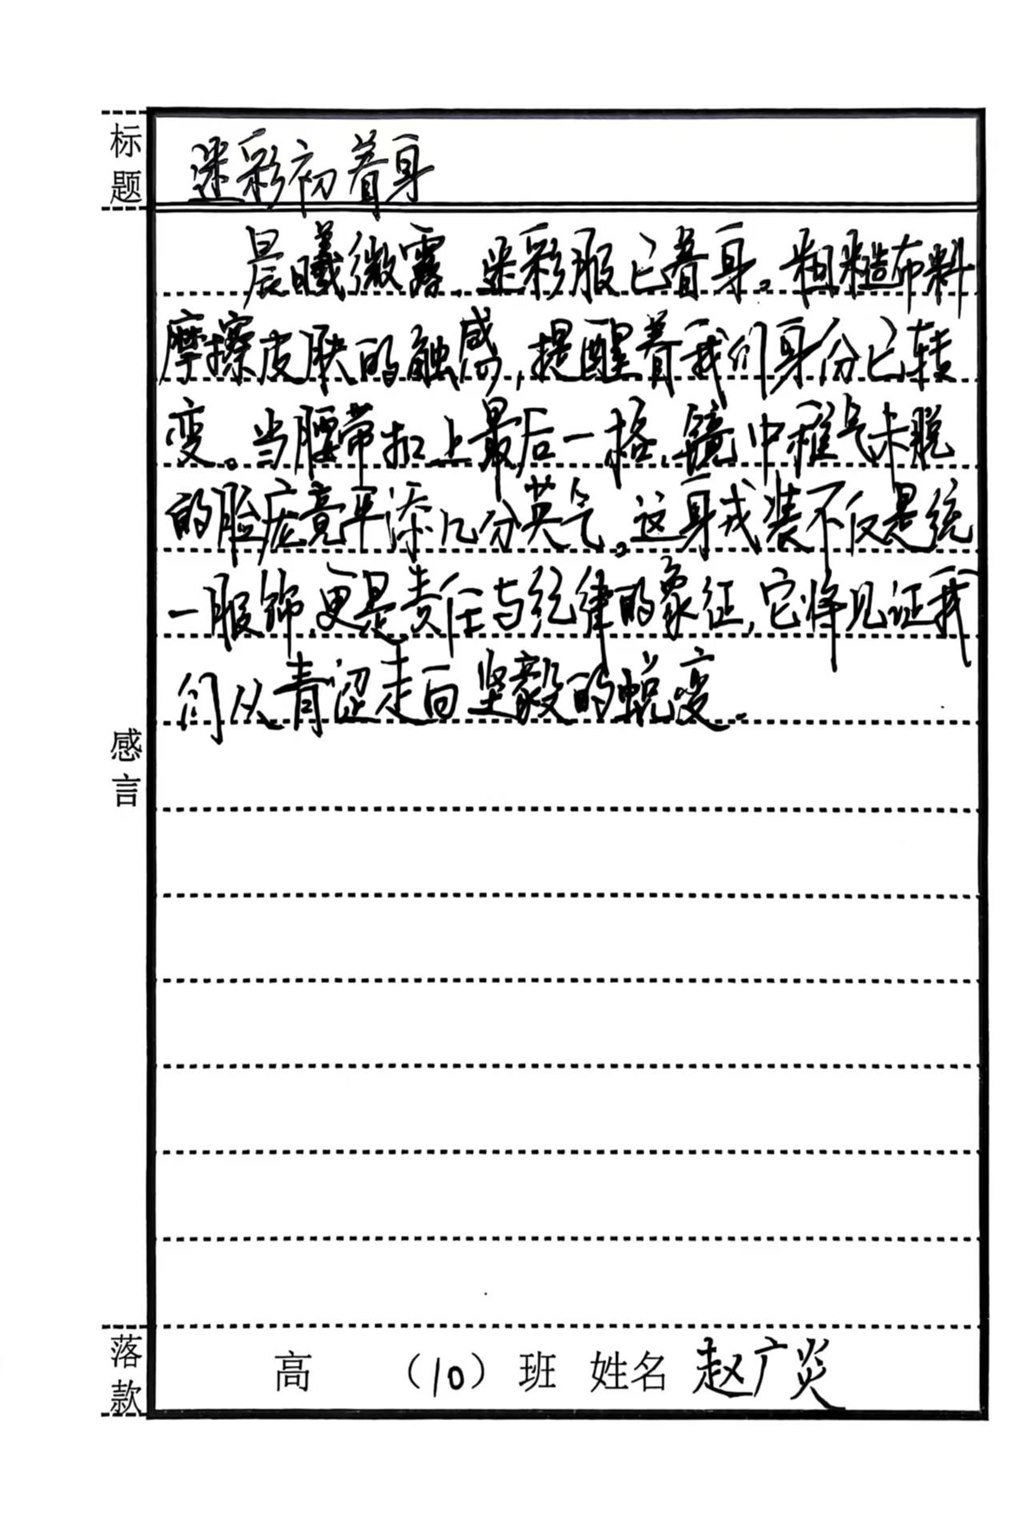 标题
迷彩初着身
晨曦微露,迷彩服已着身。粗糙布料
摩擦皮肤的触感,提醒着我们身份已转
变。当腰带扣上最后一格,镜中稚气未脱
的脸庞竟平添几分英气。这身戎装不仅是统
一服饰,更是责任与纪律的象征,它将见证我
们从青涩走向坚毅的蜕变。
感言
落款
高 （10）班 姓名 赵广炎